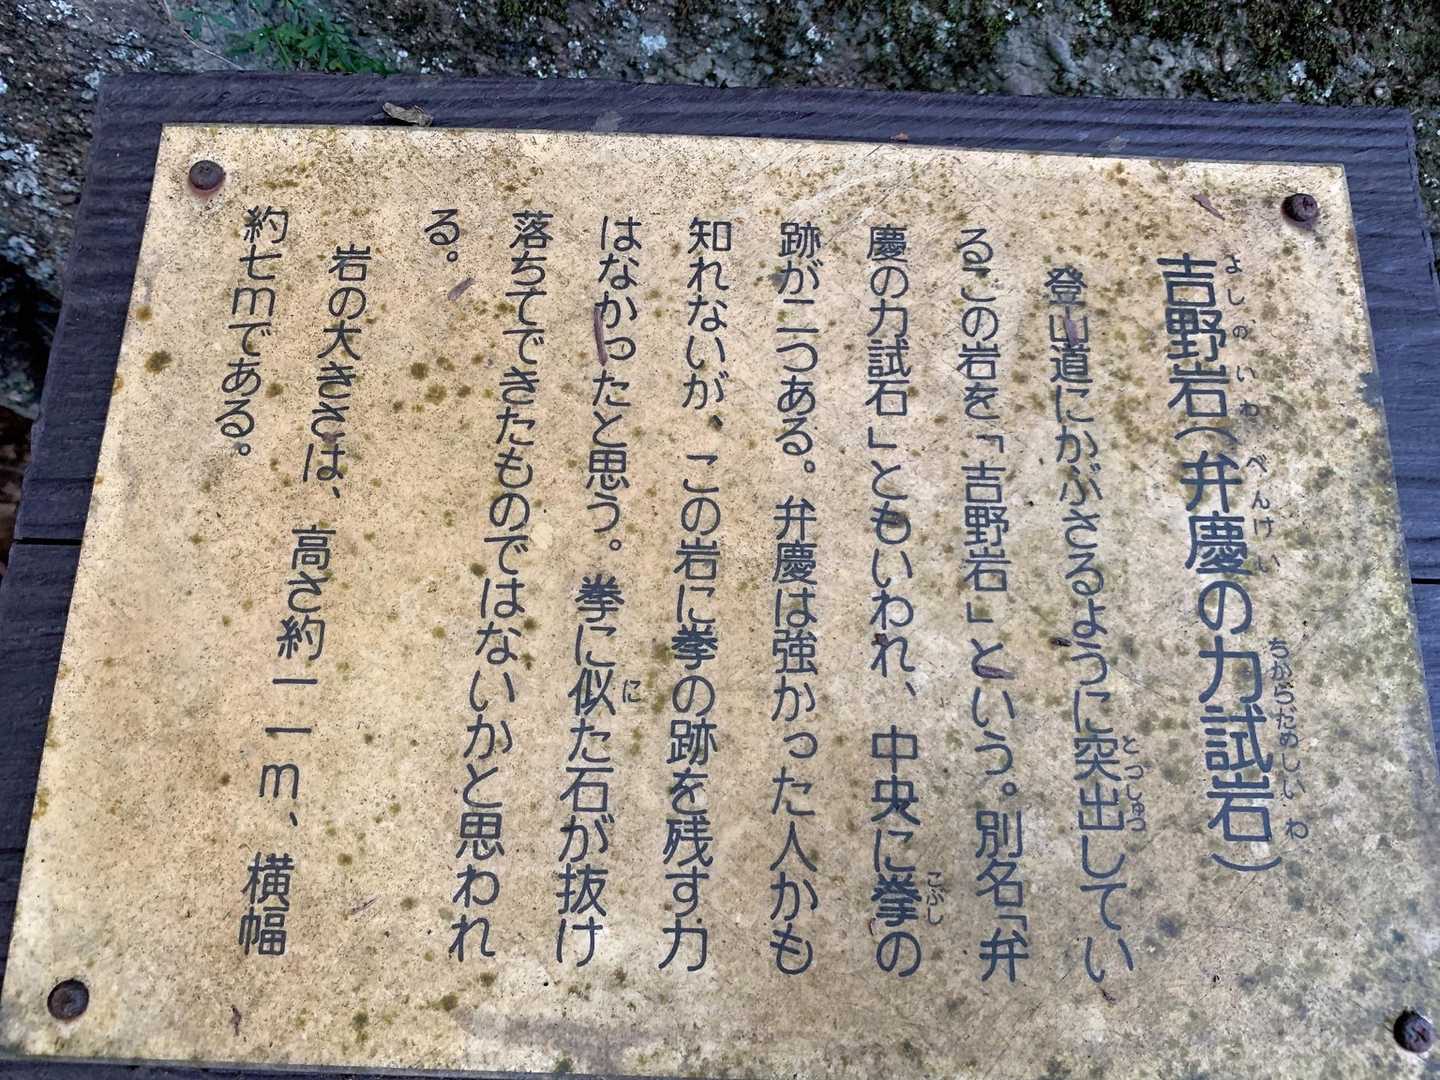 吉野岩(弁慶の力試岩)
よしのいわ べんけい ちからだめしいわ
登山道にかぶさるように突出してい
とつしゅつ
るこの岩を「吉野岩」という。別名「弁
慶の力試石」ともいわれ、中央に拳の
こぶし
跡が二つある。弁慶は強かった人かも
知れないが、この岩に拳の跡を残す力
はなかったと思う。拳に似た石が抜け
に
落ちてできたものではないかと思われ
る。
岩の大きさは、高さ約一一m、横幅
約七mである。